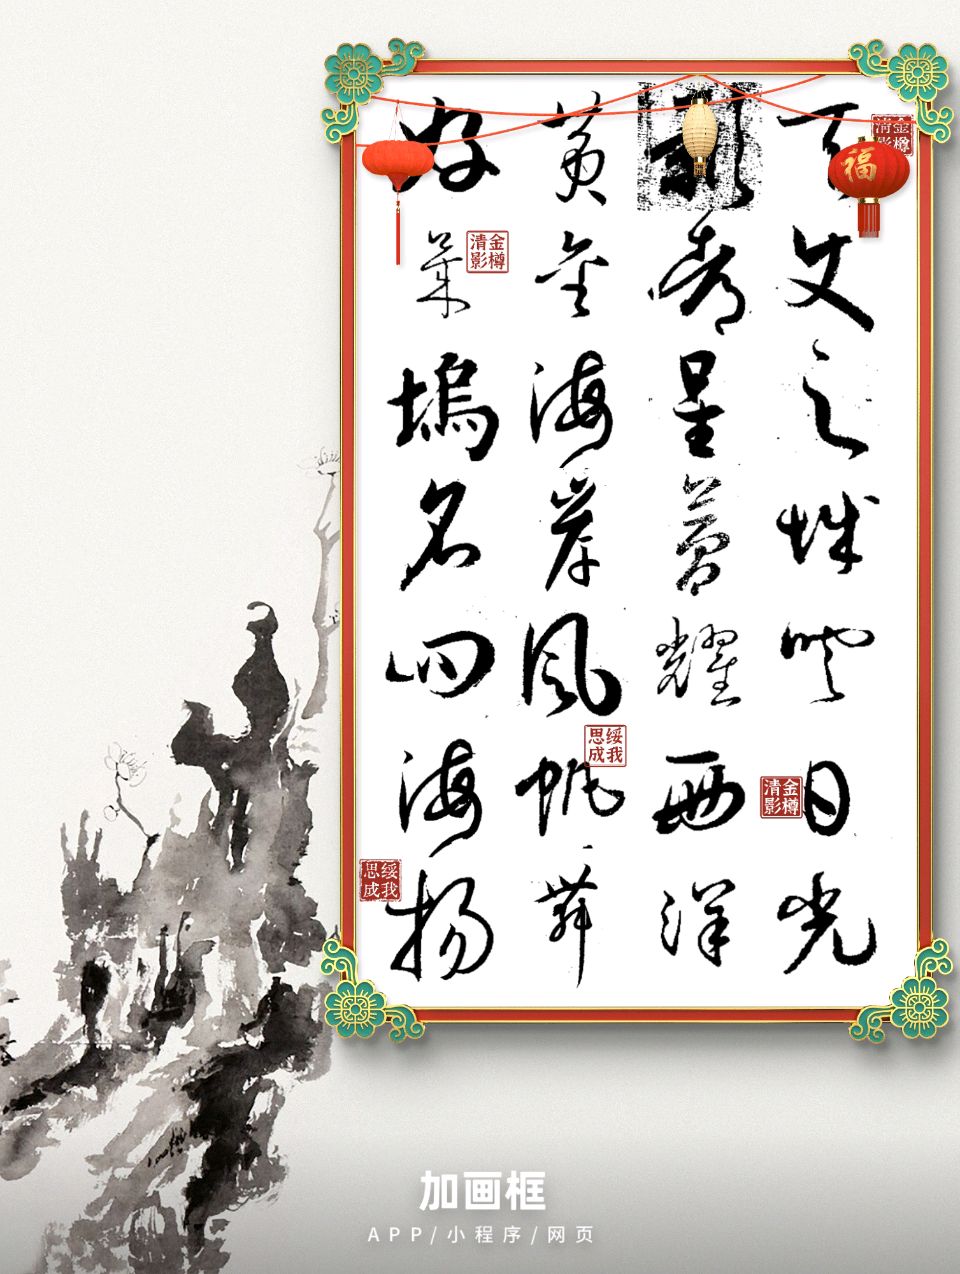 天使之城映日光
影都星薈耀西洋
黄金海岸风帆舞
好莱坞名四海扬
金樽清影
金樽清影
金樽清影
绥我思成
绥我思成
福
加画框
APP/小程序/网页